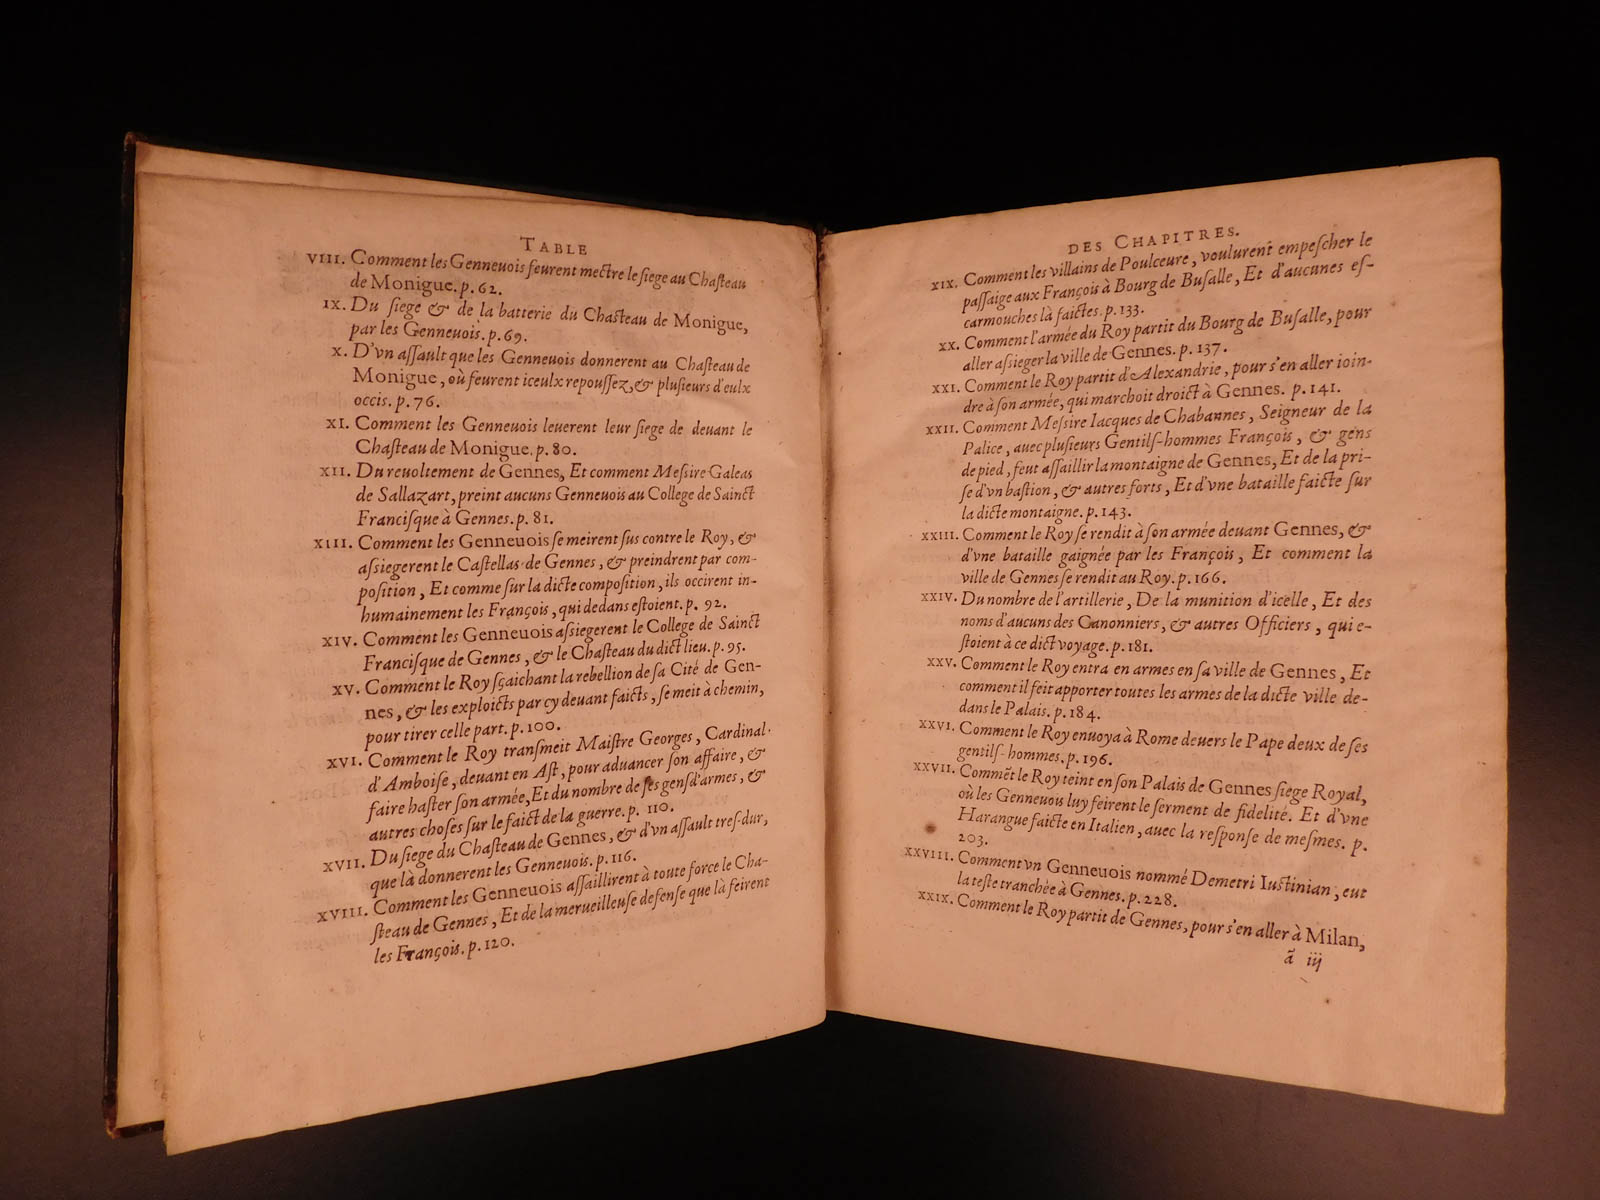 TABLE
VIII. Comment les Genneuois feurent mectre le siege au Chasteau
de Monigue. p. 62.
IX. Du siege & de la batterie du Chasteau de Monigue,
par les Genneuois. p. 69.
X. D'vn assault que les Genneuois donnerent au Chasteau de
Monigue, où feurent iceulx repoussez, & plusieurs d'eulx
occis. p. 76.
XI. Comment les Genneuois leuerent leur siege de deuant le
Chasteau de Monigue. p. 80.
XII. Du reuoltement de Gennes, Et comment Messire Galeas
de Sallazart, preint aucuns Genneuois au College de Sainct
Francisque à Gennes. p. 81.
XIII. Comment les Genneuois se meirent sus contre le Roy, &
assiegerent le Castellas de Gennes, & preindrent par com-
position, Et comme sur la dicte composition, ils occirent in-
humainement les François, qui dedans estoient. p. 92.
XIV. Comment les Genneuois assiegerent le College de Sainct
Francisque de Gennes, & le Chasteau du dict lieu. p. 95.
XV. Comment le Roy sçaichant la rebellion de sa Cité de Gen-
nes, & les exploicts par cy deuant faicts, se meit à chemin,
pour tirer celle part. p. 100.
XVI. Comment le Roy transmeit Maistre Georges, Cardinal
d'Amboise, deuant en Ast, pour aduancer son affaire, &
faire haster son armée, Et du nombre de ses gensd'armes, &
autres choses sur le faict de la guerre. p. 110.
XVII. Du siege du Chasteau de Gennes, & d'vn assault tres-dur,
que là donnerent les Genneuois. p. 116.
XVIII. Comment les Genneuois assaillirent à toute force le Cha-
steau de Gennes, Et de la merueilleuse defense que là feirent
les François. p. 120.
DES CHAPITRES.
XIX. Comment les villains de Poulceure, voulurent empescher le
passaige aux François à Bourg de Busalle, Et d'aucunes es-
carmouches là faictes. p. 133.
XX. Comment l'armée du Roy partit du Bourg de Busalle, pour
aller assieger la ville de Gennes. p. 137.
XXI. Comment le Roy partit d'Alexandrie, pour s'en aller ioin-
dre à son armée, qui marchoit droict à Gennes. p. 141.
XXII. Comment Messire Iacques de Chabannes, Seigneur de la
Palice, auec plusieurs Gentils-hommes François, & gens
de pied, feut assaillir la montaigne de Gennes, Et de la pri-
se d'vn bastion, & autres forts, Et d'vne bataille faicte sur
la dicte montaigne. p. 143.
XXIII. Comment le Roy se rendit à son armée deuant Gennes, &
d'vne bataille gaignée par les François, Et comment la
ville de Gennes se rendit au Roy. p. 166.
XXIV. Du nombre de l'artillerie, De la munition d'icelle, Et des
noms d'aucuns des Canonniers, & autres Officiers, qui e-
stoient à ce dict voyage. p. 181.
XXV. Comment le Roy entra en armes en sa ville de Gennes, Et
comment il feit apporter toutes les armes de la dicte ville de-
dans le Palais. p. 184.
XXVI. Comment le Roy enuoya à Rome deuers le Pape deux de ses
gentils-hommes. p. 196.
XXVII. Commēt le Roy teint en son Palais de Gennes siege Royal,
où les Genneuois luy feirent le serment de fidelité. Et d'vne
Harangue faicte en Italien, auec la response de mesmes. p.
203.
XXVIII. Comment vn Genneuois nommé Demetri Iustinian, eut
la teste tranchée à Gennes. p. 228.
XXIX. Comment le Roy partit de Gennes, pour s'en aller à Milan,
ã iij